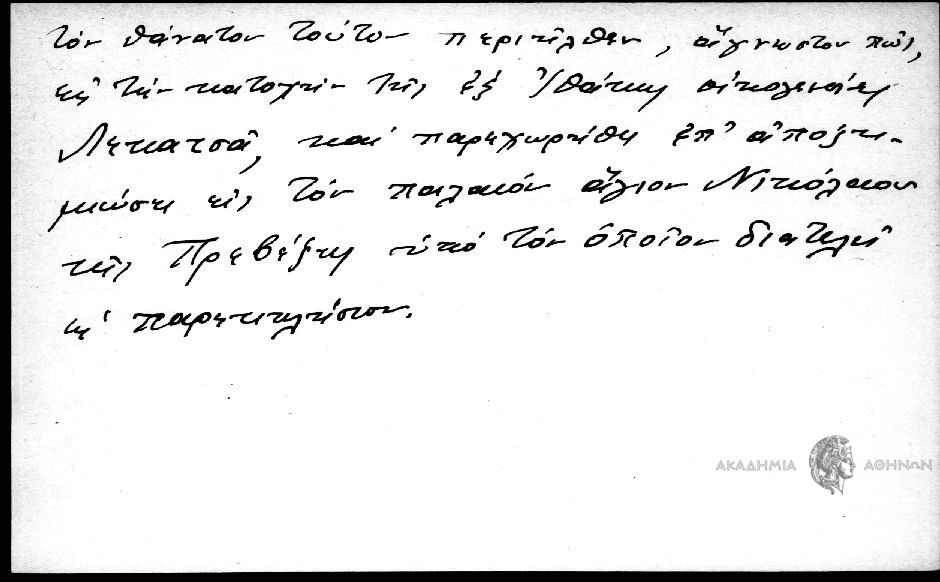 τὸν θάνατον τούτου περιῆλθεν, ἄγνωστον πῶς,
εἰς τὴν κατοχὴν τῆς ἐξ Ἰθάκης οἰκογενείας
Λεκατσᾶ, καὶ παρεχωρήθη ἐπ' ἀποζη-
μιώσει εἰς τὸν παλαιὸν ἅγιον Νικόλαον
τῆς Πρεβέζης ὑπὸ τὸν ὁποῖον διατελεῖ
ὡς παρεκκλήσιον.
ΑΚΑΔΗΜΙΑ ΑΘΗΝΩΝ